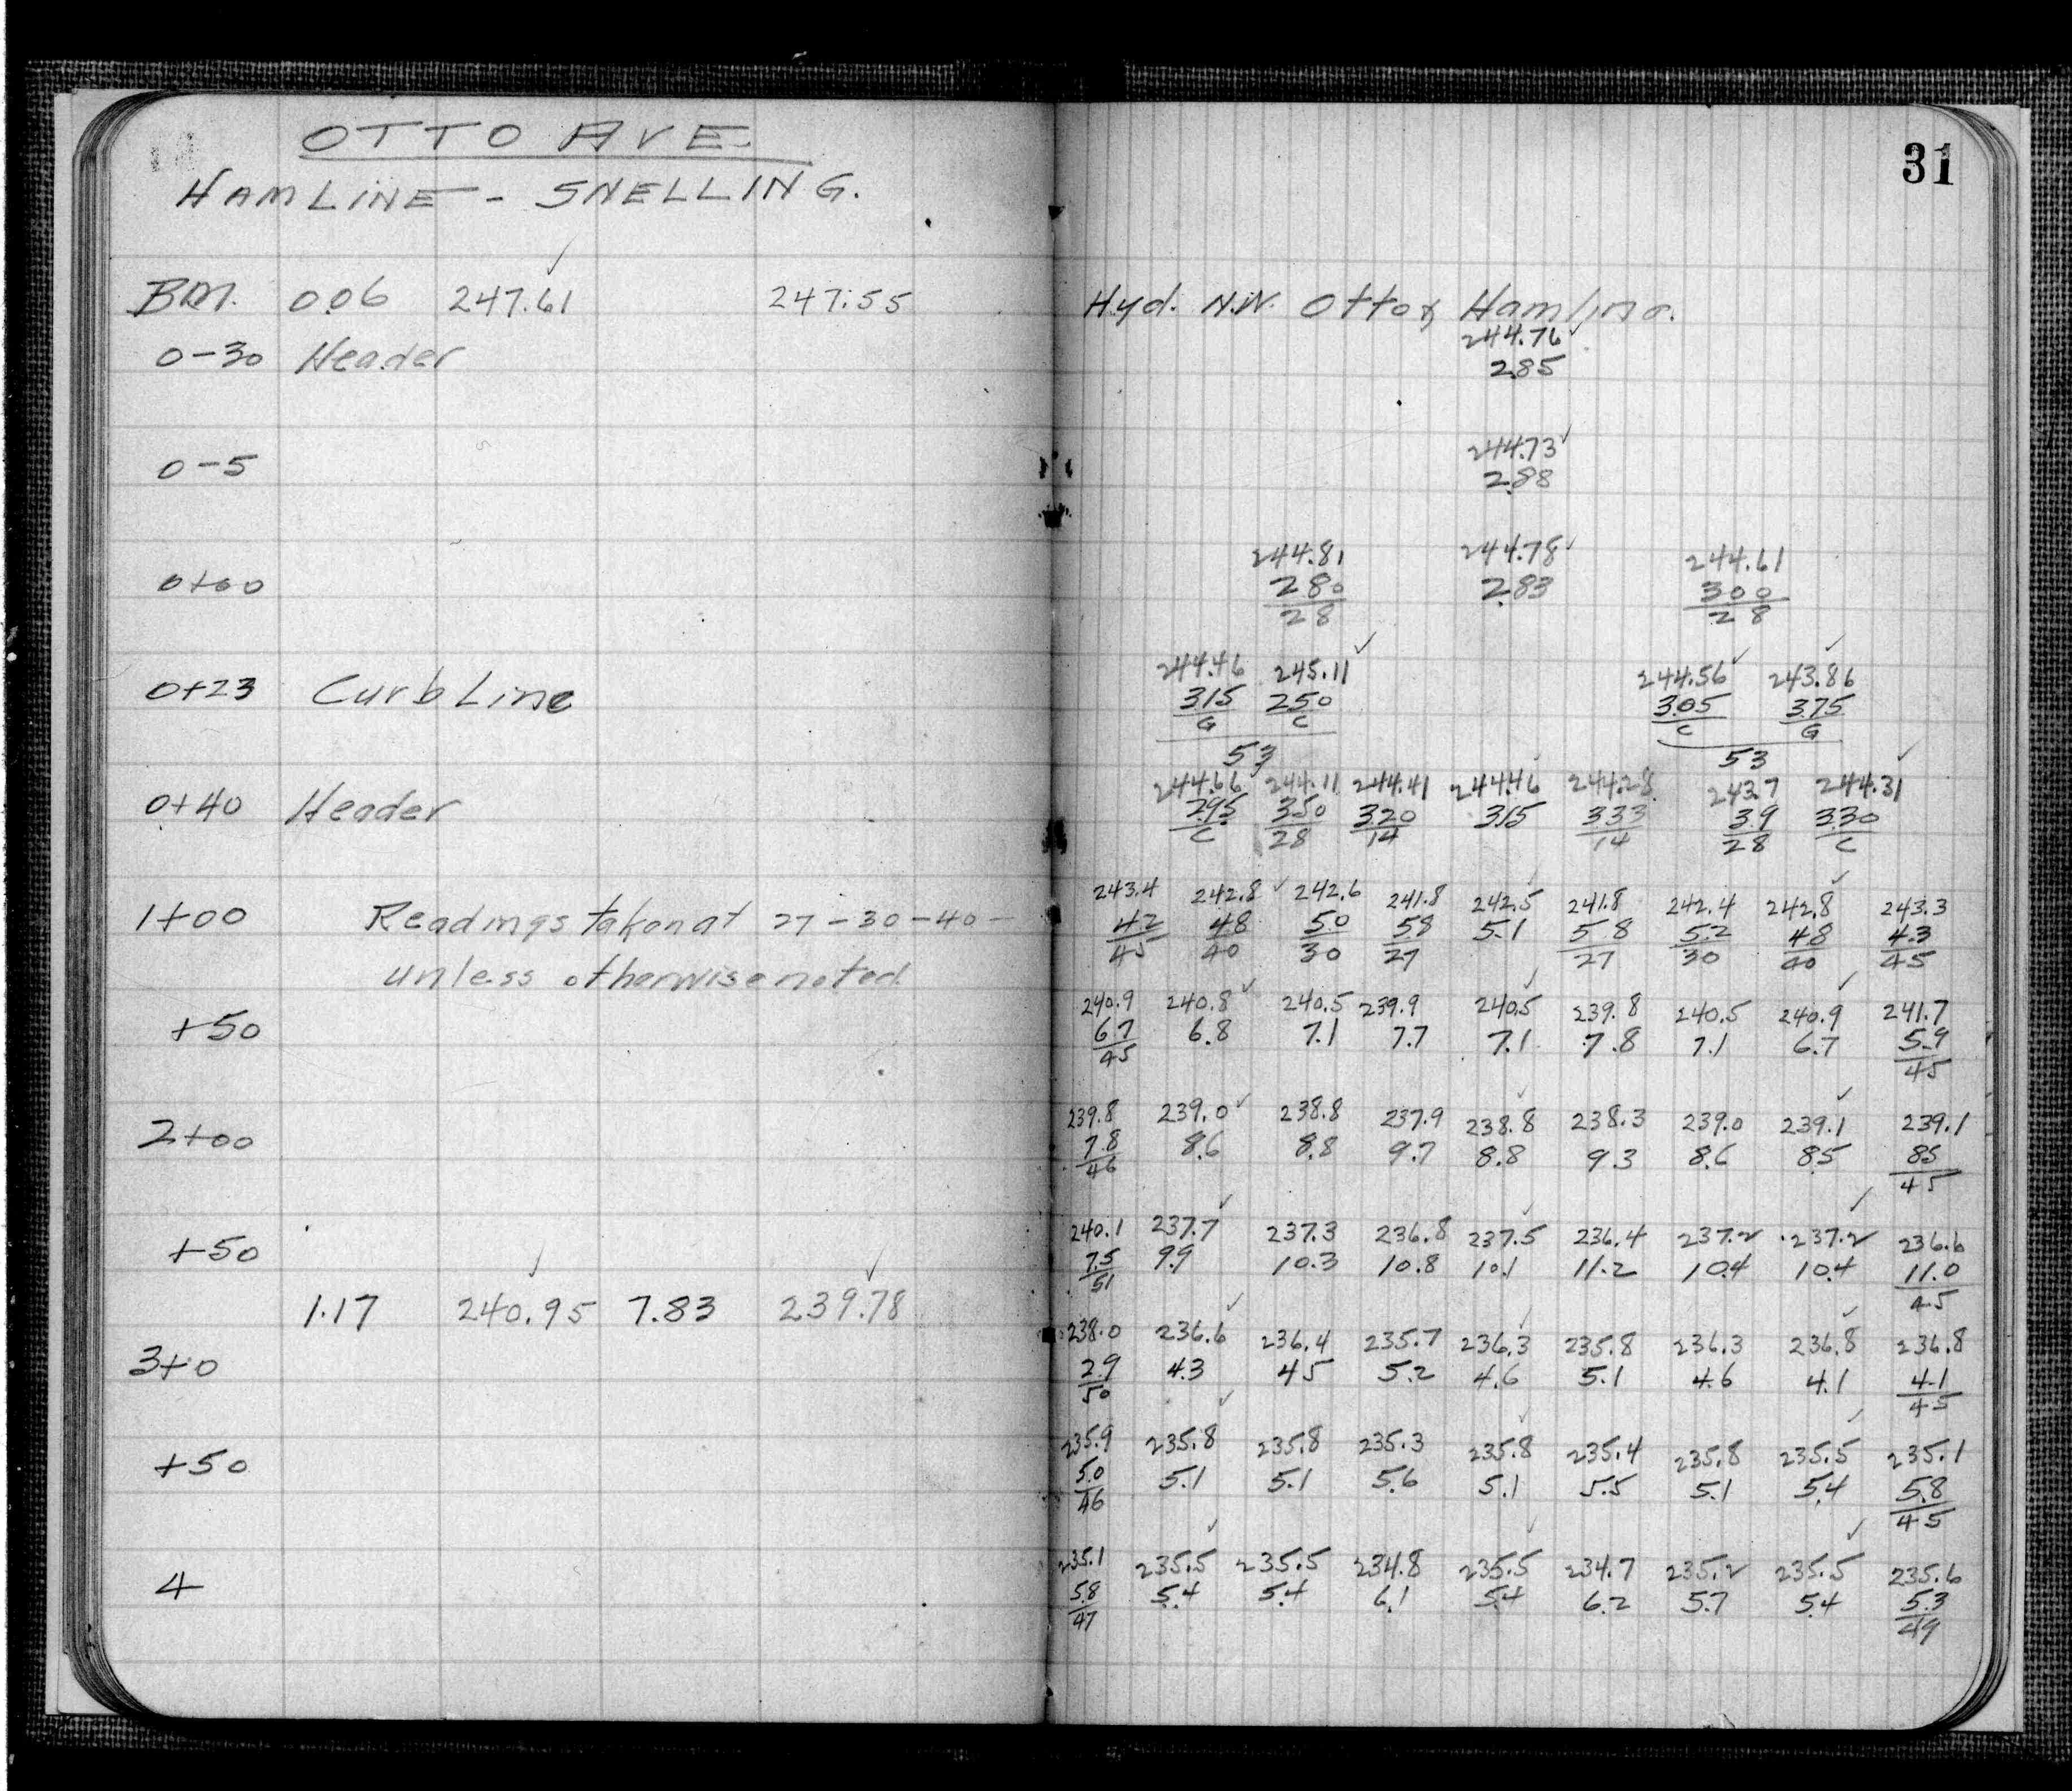 OTTO AVE.
HAMLINE - SNELLING.
31
BM. 0.06 247.61 247.55 Hyd. N.W. Otto & Hamline.
244.76
0-30 Header 2.85
244.73
0-5 2.88
244.81 244.78 244.61
0+00 2.80 2.83 3.00
28 28
244.46 245.11 244.56 243.86
0+23 Curb Line 3.15 2.50 3.05 3.75
G C C G
53 53
244.66 244.11 244.41 244.46 244.28 243.7 244.31
0+40 Header 2.95 3.50 3.20 3.15 3.33 3.9 3.30
C 28 14 14 28 C
243.4 242.8 242.6 241.8 242.5 241.8 242.4 242.8 243.3
1+00 Readings taken at 27-30-40- 4.2 4.8 5.0 5.8 5.1 5.8 5.2 4.8 4.3
unless otherwise noted. 45 40 30 27 27 30 40 45
240.9 240.8 240.5 239.9 240.5 239.8 240.5 240.9 241.7
+50 6.7 6.8 7.1 7.7 7.1 7.8 7.1 6.7 5.9
45 45
239.8 239.0 238.8 237.9 238.8 238.3 239.0 239.1 239.1
2+00 7.8 8.6 8.8 9.7 8.8 9.3 8.6 8.5 8.5
46 45
240.1 237.7 237.3 236.8 237.5 236.4 237.2 237.2 236.6
+50 7.5 9.9 10.3 10.8 10.1 11.2 10.4 10.4 11.0
51 45
1.17 240.95 7.83 239.78
238.0 236.6 236.4 235.7 236.3 235.8 236.3 236.8 236.8
3+0 2.9 4.3 4.5 5.2 4.6 5.1 4.6 4.1 4.1
50 45
235.9 235.8 235.8 235.3 235.8 235.4 235.8 235.5 235.1
+50 5.0 5.1 5.1 5.6 5.1 5.5 5.1 5.4 5.8
46 45
235.1 235.5 235.5 234.8 235.5 234.7 235.2 235.5 235.6
4 5.8 5.4 5.4 6.1 5.4 6.2 5.7 5.4 5.3
47 49